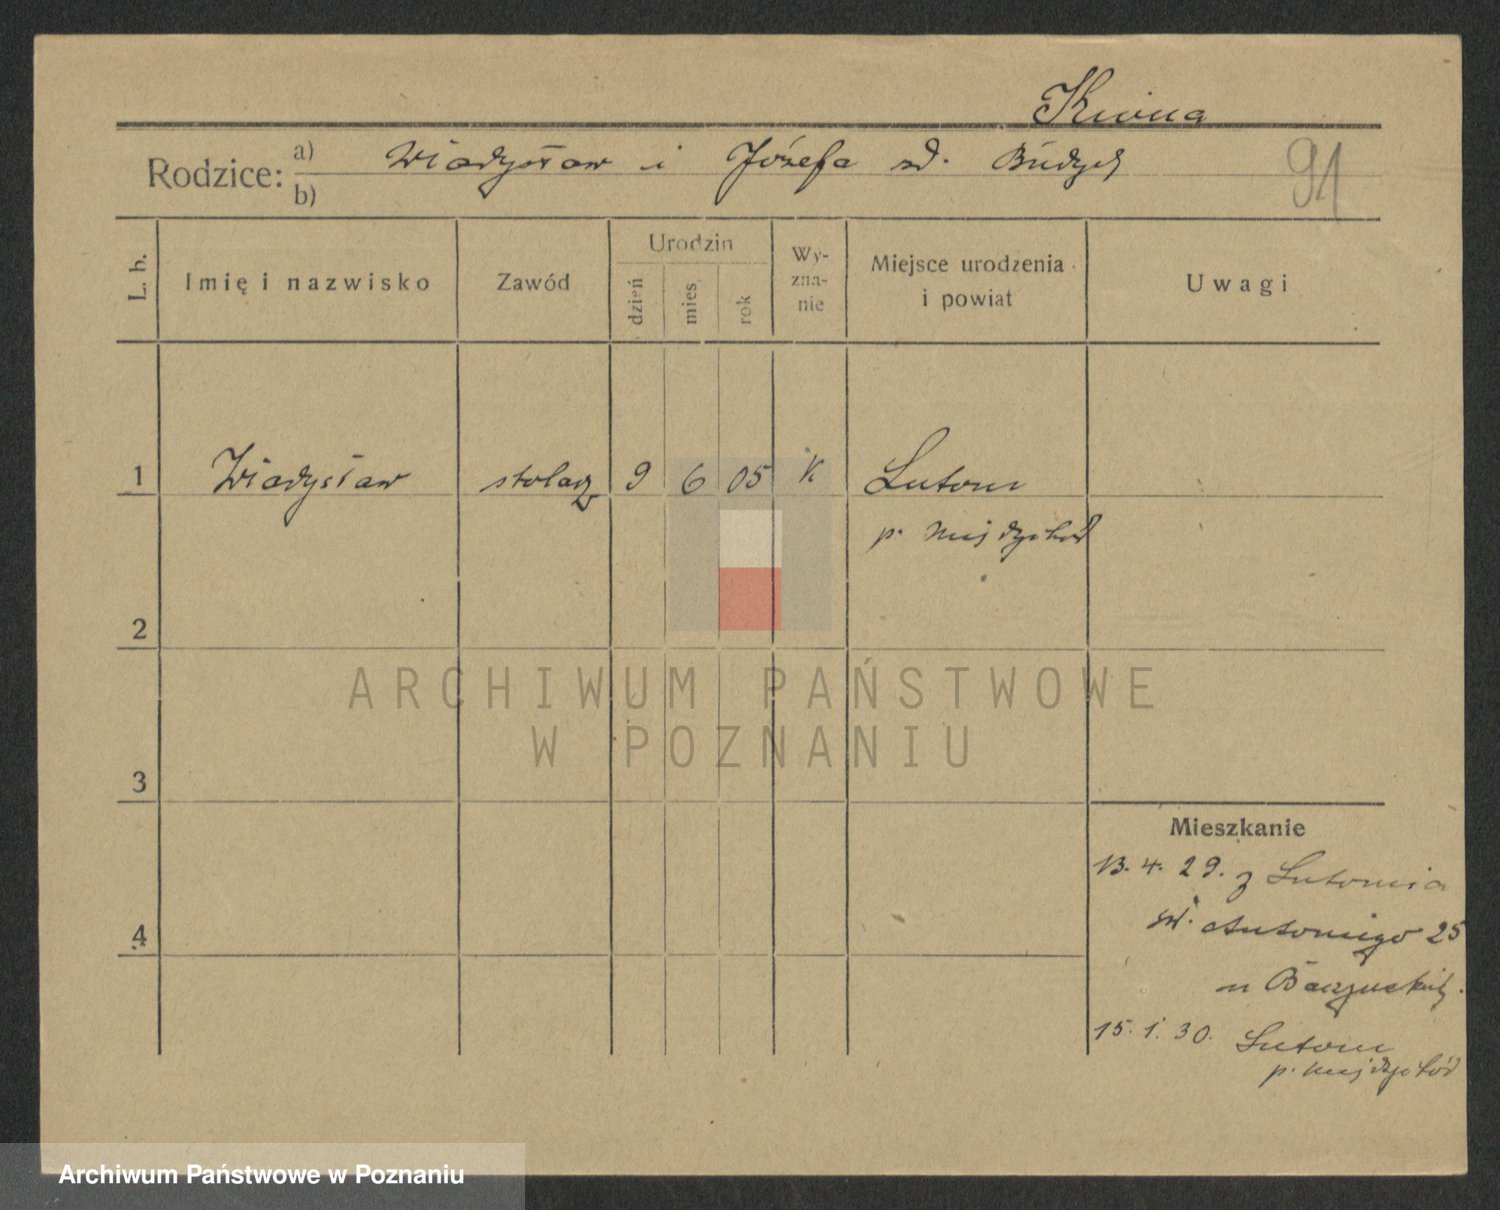 Kwina
Rodzice: a) Władysław i Józefa zd. Budych
b)
91
L. b.
Imię i nazwisko
Zawód
Urodzin
dzień
mies
rok
Wy-
zna-
nie
Miejsce urodzenia
i powiat
Uwagi
1 Władysław stolarz 9 6 05 K Lutom
p. Międzychód
2
3
4
Mieszkanie
13. 4. 29. z Lutomia
św. Antoniego 25
u
15. 1. 30. Lutom
p. Międzychód
ARCHIWUM PAŃSTWOWE
W POZNANIU
Archiwum Państwowe w Poznaniu